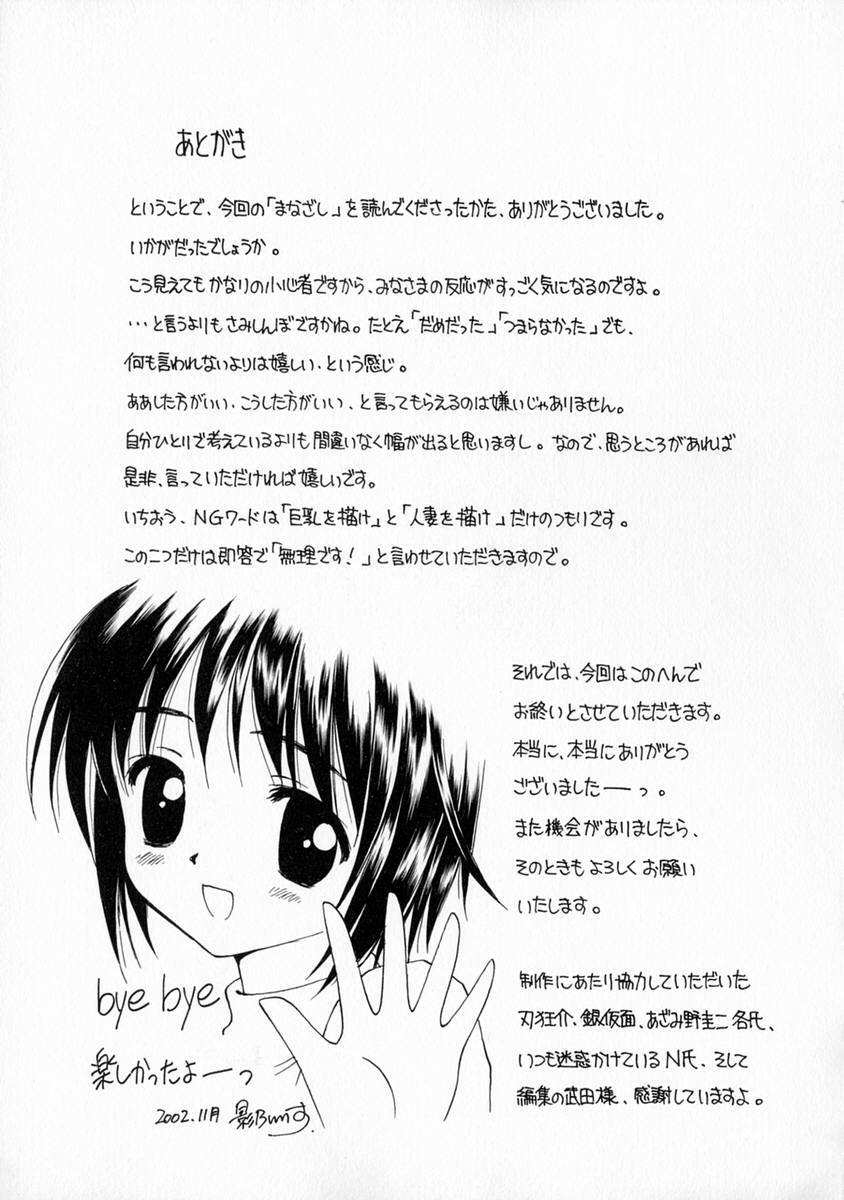 あとがき
ということで、今回の「まなざし」を読んでくださったかた、ありがとうございました。
いかがだったでしょうか。
こう見えてもかなりの小心者ですから、みなさまの反応がすっごく気になるのですよ。
…と言うよりもさみしんぼですかね。たとえ「だめだった」「つまらなかった」でも、
何も言われないよりは嬉しい、という感じ。
ああした方がいい、こうした方がいい、と言ってもらえるのは嫌いじゃありません。
自分ひとりで考えているよりも間違いなく幅が出ると思いますし。なので、思うところがあれば
是非、言っていただければ嬉しいです。
いちおう、NGワードは「巨乳を描け」と「人妻を描け」だけのつもりです。
この二つだけは即答で「無理です！」と言わせていただきますので。
それでは、今回はこのへんで
お終いとさせていただきます。
本当に、本当にありがとう
ございましたーっ。
また機会がありましたら、
そのときもよろしくお願い
いたします。
制作にあたり協力していただいた
刃狂介、銀仮面、あざみ野圭二各氏、
いつも迷惑かけているN氏、そして
編集の武田様、感謝していますよ。
bye bye
楽しかったよーっ
2002.11月